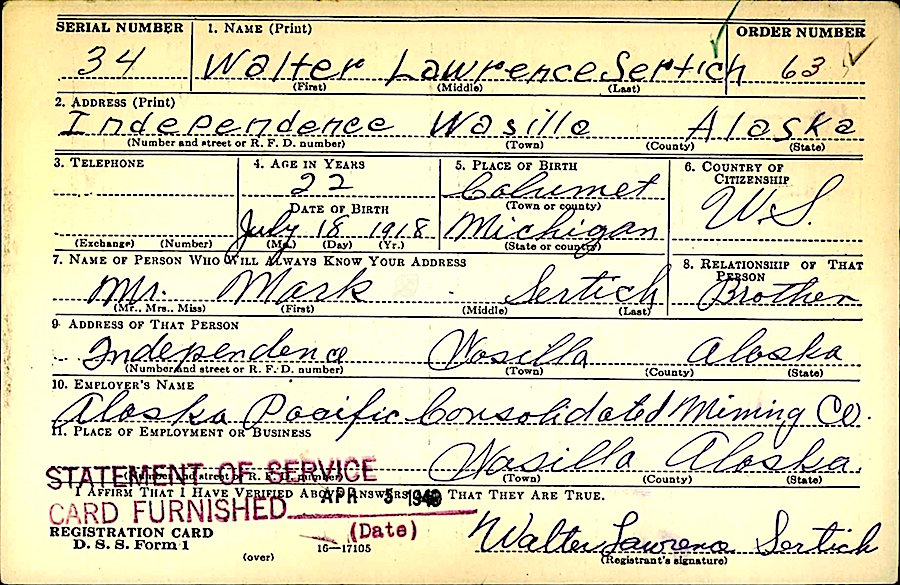 SERIAL NUMBER 1. NAME (Print) ORDER NUMBER
34 Walter Lawrence Sertich 63
(First) (Middle) (Last)
2. ADDRESS (Print)
Independence Wasilla Alaska
(Number and street or R. F. D. number) (Town) (County) (State)
3. TELEPHONE 4. AGE IN YEARS 5. PLACE OF BIRTH 6. COUNTRY OF
CITIZENSHIP
22 Calumet U.S.
DATE OF BIRTH (Town or county)
July 18 1918 Michigan
(Exchange) (Number) (Mo.) (Day) (Yr.) (State or country)
7. NAME OF PERSON WHO WILL ALWAYS KNOW YOUR ADDRESS 8. RELATIONSHIP OF THAT
PERSON
Mr. Mark Sertich Brother
(Mr., Mrs., Miss) (First) (Middle) (Last)
9. ADDRESS OF THAT PERSON
Independence Wasilla Alaska
(Number and street or R. F. D. number) (Town) (County) (State)
10. EMPLOYER'S NAME
Alaska Pacific Consolidated Mining Co.
11. PLACE OF EMPLOYMENT OR BUSINESS
Wasilla Alaska.
STATEMENT OF SERVICE
(Number and street or R. F. D. number) (Town) (County) (State)
I AFFIRM THAT I HAVE VERIFIED ABOVE ANSWERS THAT THEY ARE TRUE.
APR 5
CARD FURNISHED
(Date)
REGISTRATION CARD
D. S. S. Form 1
Walter Lawrence Sertich
(over) 16-17105 (Registrant's signature)